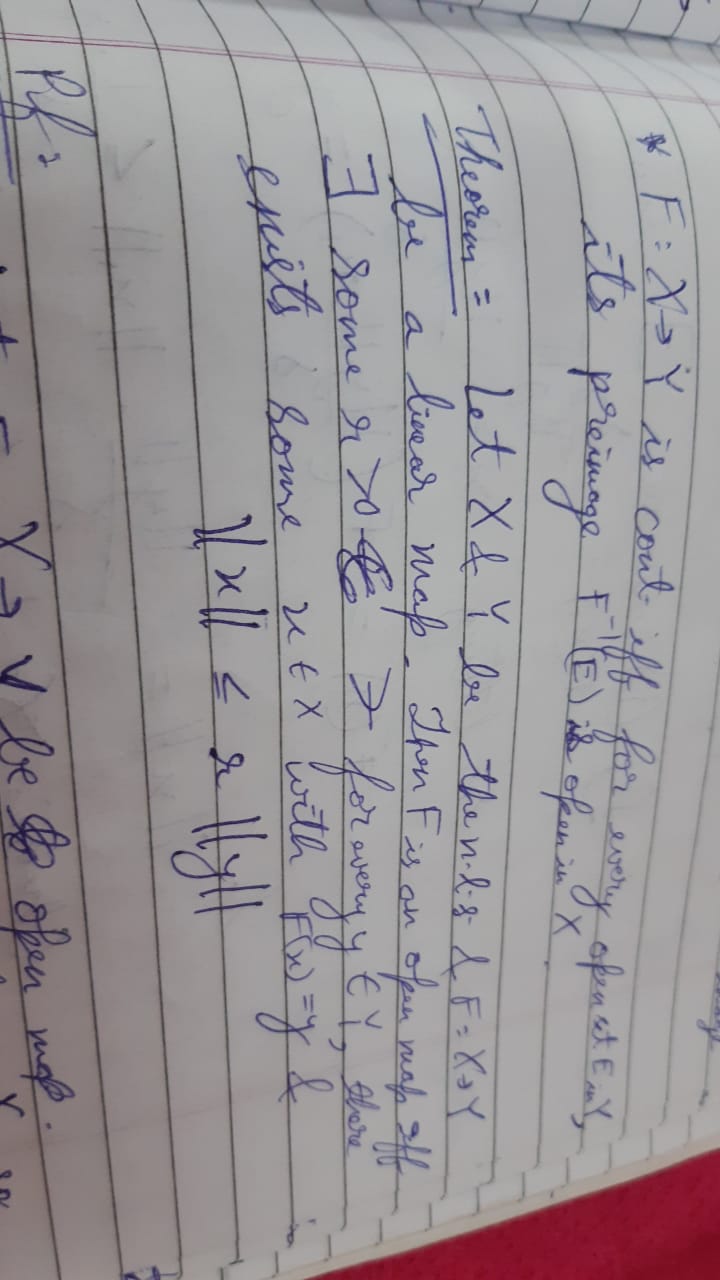 * F: X→Y is cont. iff for every open set E in Y,
its preimage F⁻¹(E) is open in X.
Theorem = Let X & Y be the n.l.s & F: X→Y
be a linear map. Then F is an open map iff
∃ some r>0 ∋ for every y ∈ Y, there
exists some x ∈ X with F(x) = y &
||x|| ≤ r ||y||
Pf:
X→Y be open map.